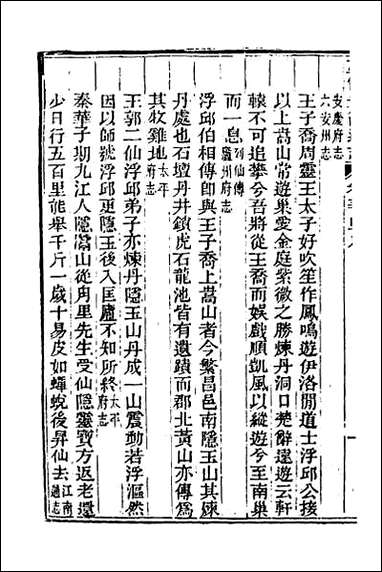 安慶府志
六安州志
王子喬周靈王太子好吹笙作鳳鳴遊伊洛間道士浮邱公接
以上嵩山常遊巢愛金庭紫微之勝煉丹洞口楚辭遠遊云軒
轅不可追攀兮吾將從王喬而娛戲順凱風以縱遊兮至南巢
而一息列仙傳廬州府志
浮邱伯相傳卽與王子喬上嵩山者今繁昌邑南隱玉山其煉
丹處也石壇丹井鎖虎石龍池皆有遺蹟而郡北黃山亦傳爲
其牧雞地太平府志
王郭二仙浮邱弟子亦煉丹隱玉山丹成一山震動若浮漚然
因以師號浮邱更隱玉後入匡廬不知所終太平府志
秦華子期九江人隱嵩山從角里先生受仙隱靈寶方返老還
少日行五百里能舉千斤一歲十易皮如蟬蛻後昇仙去江南通志